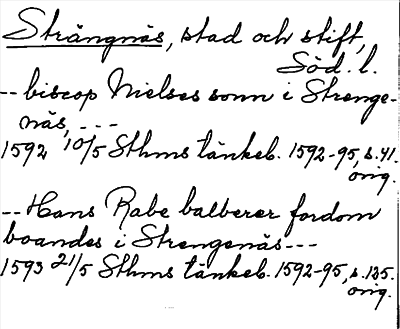 Strängnäs, stad och stift,
Söd. l.
-- biscop Nielses sonn i Strenge-
näs, ---
1592 10/5 Sthms tänkeb. 1592-95, s. 41.
orig.
-- Hans Rabe balberer fordom
boandes i Strengenäs ---
1593 21/5 Sthms tänkeb. 1592-95, s. 125.
orig.